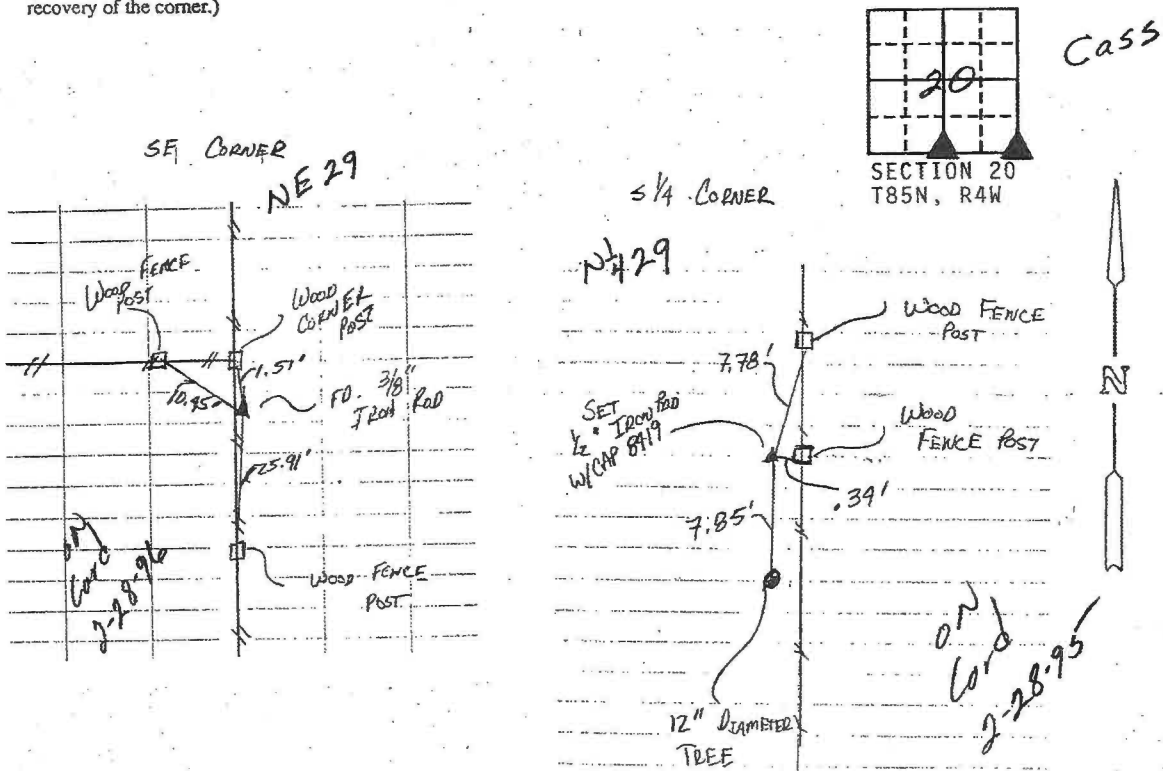 recovery of the corner.)
Cass
20
SECTION 20
T85N, R4W
SE CORNER
NE 29
WOOD FENCE
POST
WOOD
CORNER
POST
1.51'
10.95'
FD. 3/8"
IRON ROD
25.91'
WOOD FENCE
POST
ON
Card
2-28-96
S 1/4 CORNER
N 1/4 29
WOOD FENCE
POST
7.78'
SET
1/2" IRON ROD
W/CAP 8419
WOOD
FENCE POST
.34'
7.85'
12" DIAMETER
TREE
N
ON
Card
2-28-95